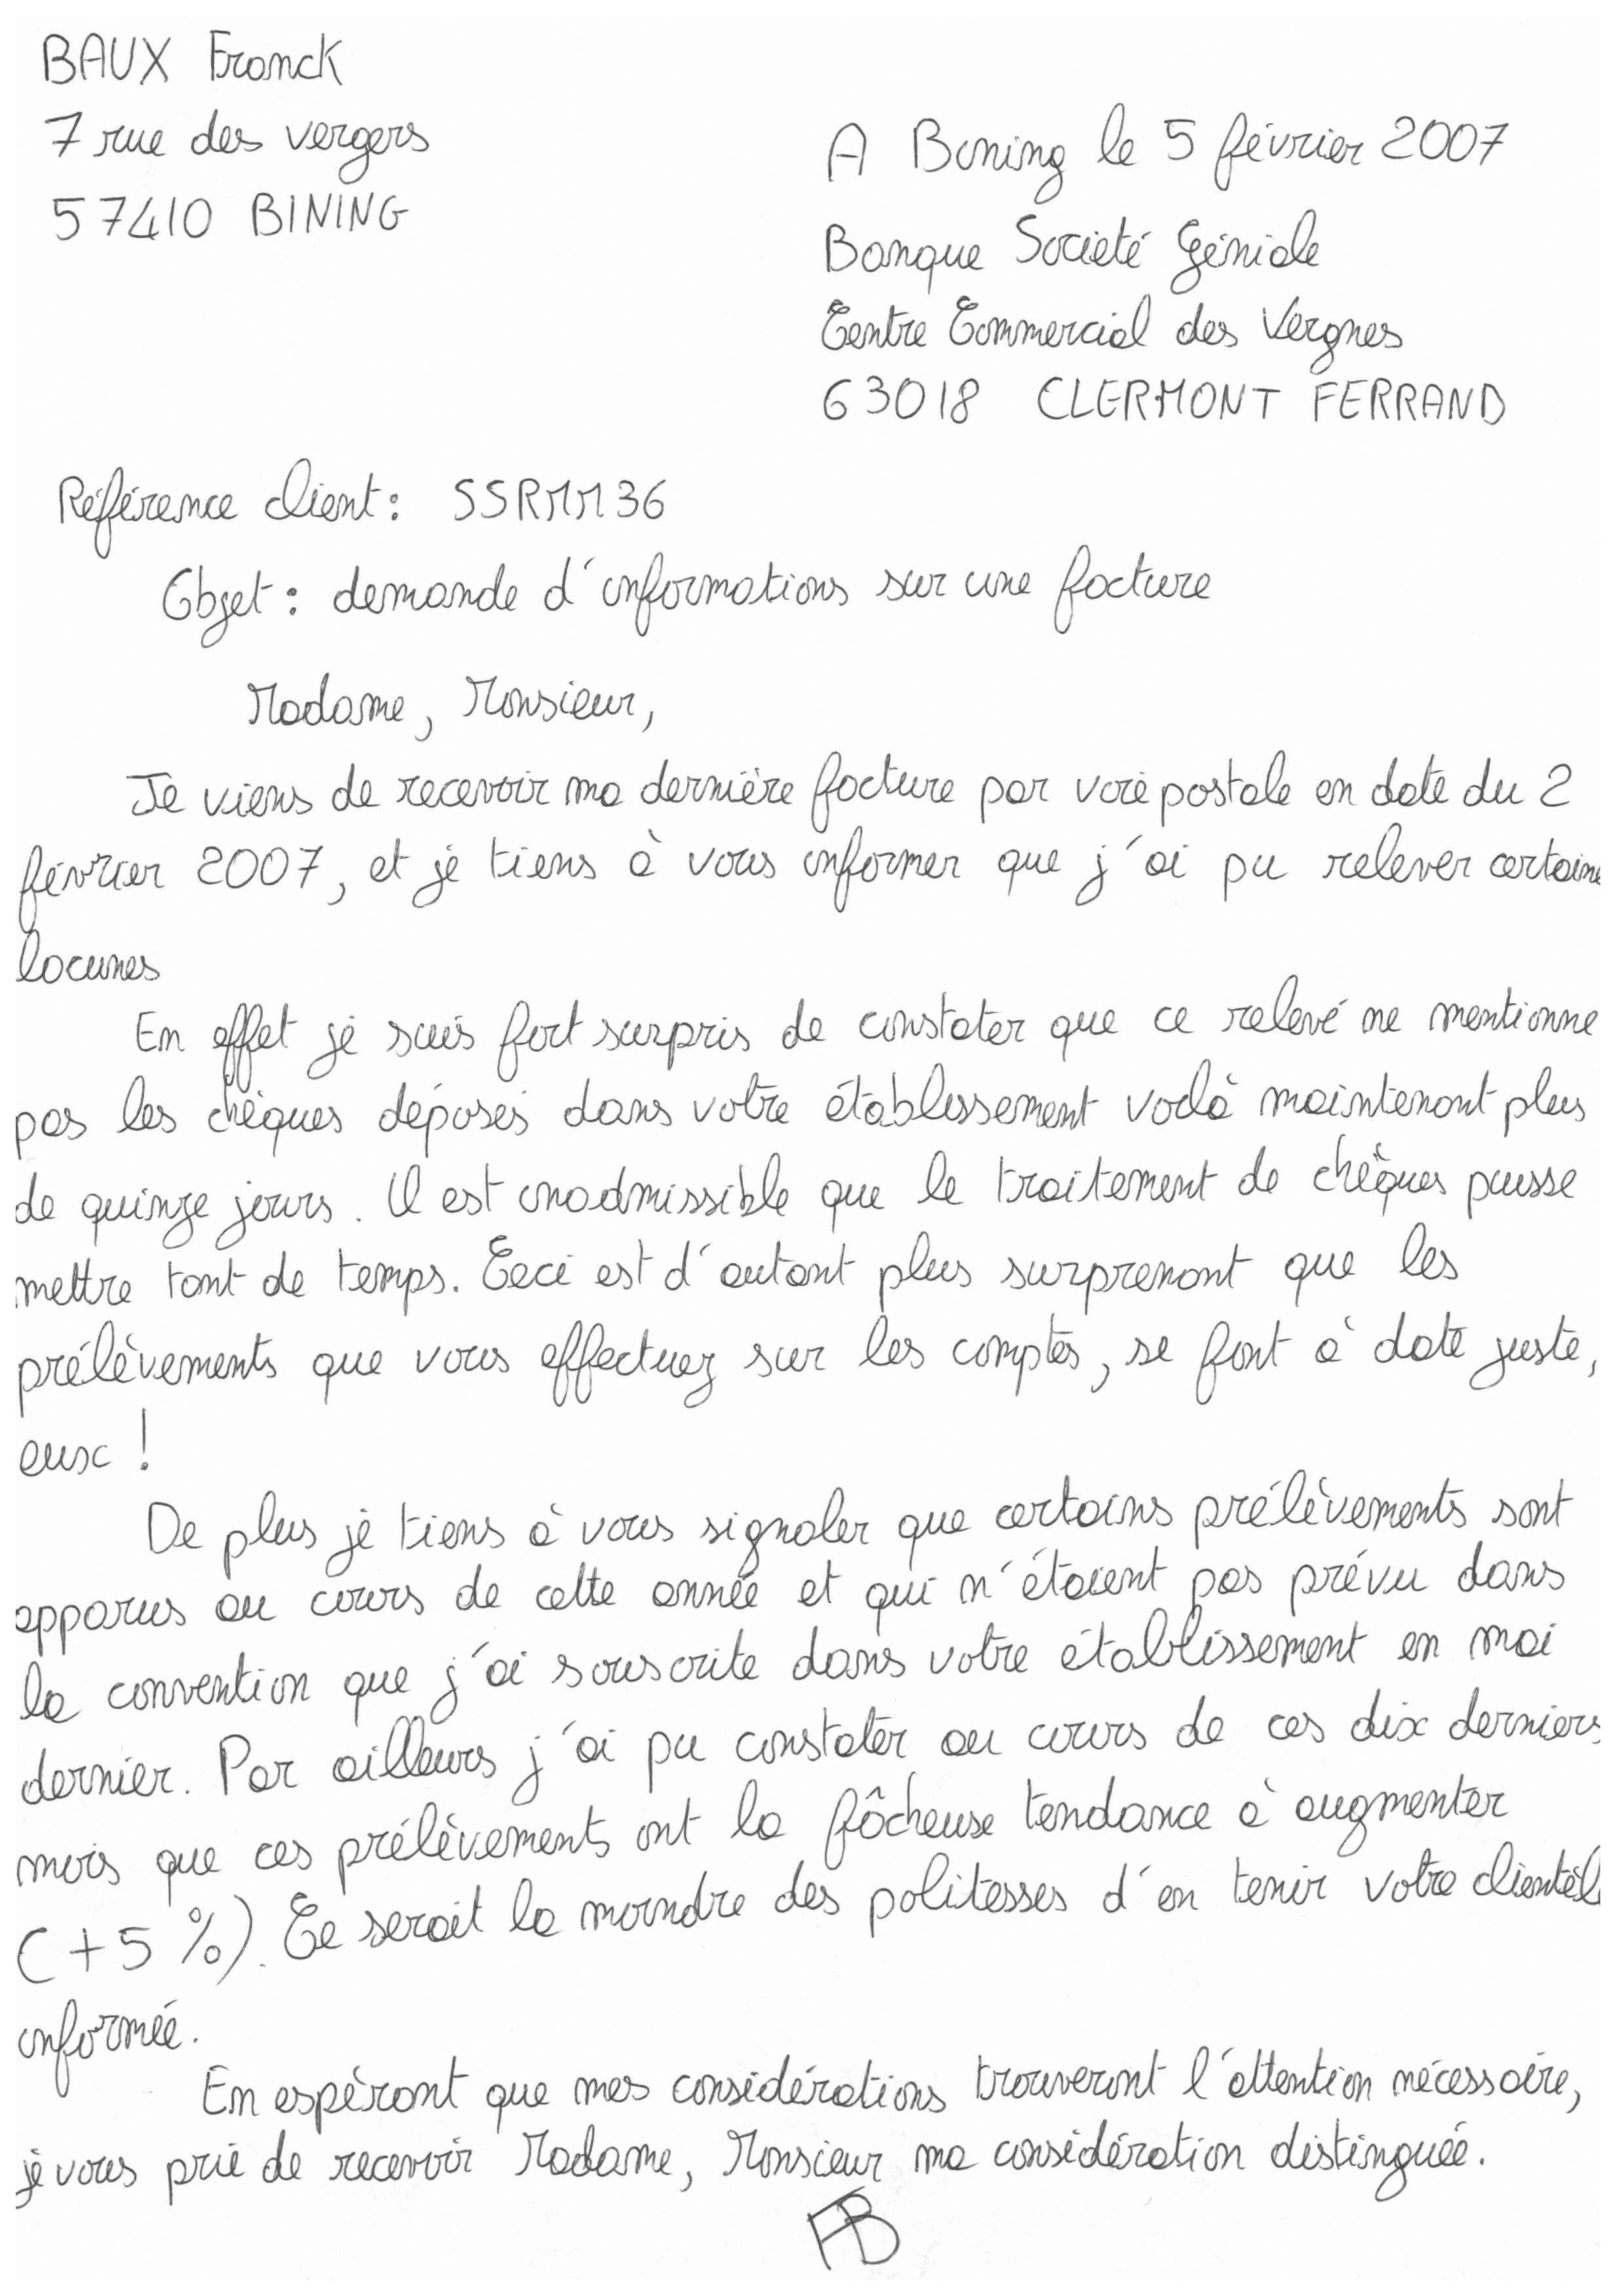 BAUX Franck
7 rue des vergers
57410 BINING
A Bining le 5 février 2007
Banque Société Géniale
Centre Commercial des Vergnes
63018 CLERMONT FERRAND
Référence client : SSRMM36
Objet : demande d'informations sur une facture
Madame, Monsieur,
Je viens de recevoir ma dernière facture par voie postale en date du 2
février 2007, et je tiens à vous informer que j'ai pu relever certaine
lacunes
En effet je suis fort surpris de constater que ce relevé ne mentionne
pas les chèques déposés dans votre établissement voilà maintenant plus
de quinze jours. Il est inadmissible que le traitement de chèques puisse
mettre tant de temps. Ceci est d'autant plus surprenant que les
prélèvements que vous effectuez sur les comptes, se font à date juste,
eux !
De plus je tiens à vous signaler que certains prélèvements sont
apparus au cours de cette année et qui n'étaient pas prévu dans
la convention que j'ai souscrite dans votre établissement en mai
dernier. Par ailleurs j'ai pu constater au cours de ces dix derniers
mois que ces prélèvements ont la fâcheuse tendance à augmenter
(+5 %). Ce serait la moindre des politesses d'en tenir votre clientèl
informée.
En espérant que mes considérations trouveront l'attention nécessaire,
je vous prie de recevoir Madame, Monsieur ma considération distinguée.
FB